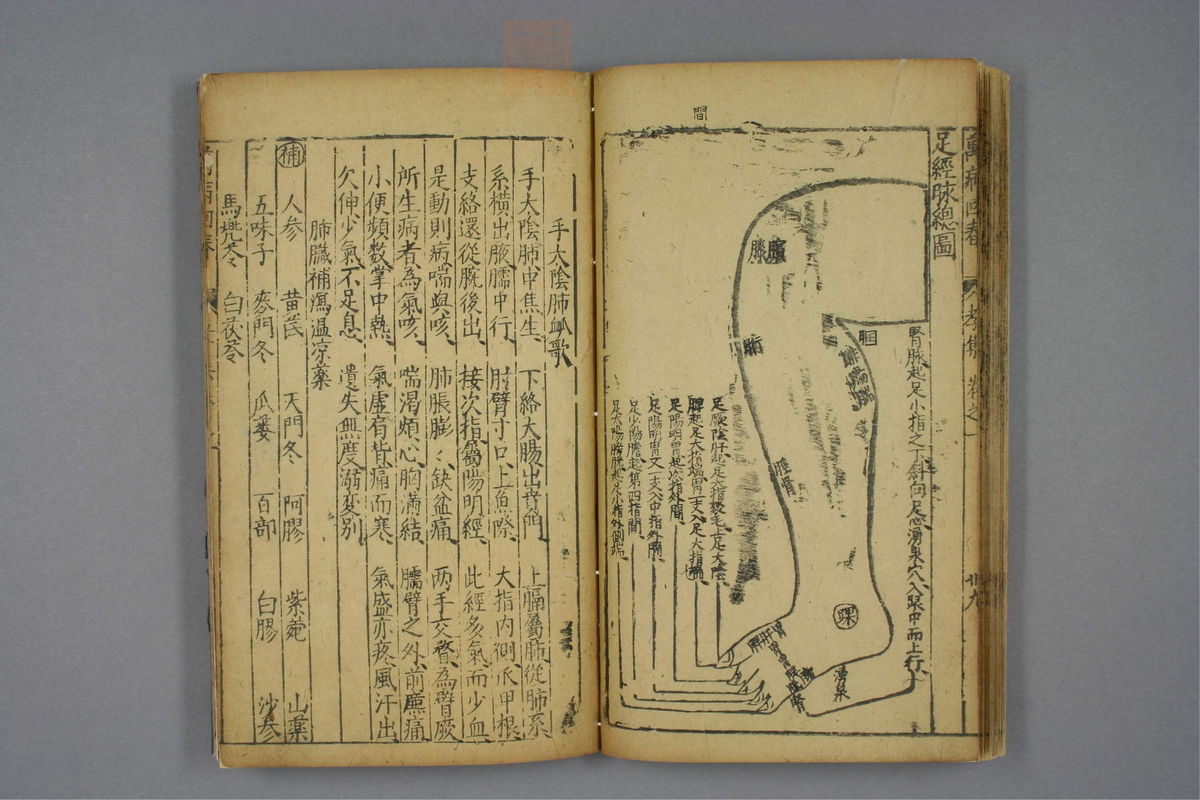 間
萬病回春
卷之一
廿九
足經脉總圖
腎脉起足小指之下斜向足心湧泉穴入裂中而上行
膝臏
腘
胻
腨腸
脛骨
踝
湧泉
足厥陰肝起足大指叢毛上足太陰
脾起足大指端胃一支入足大指
足陽明胃起次指外間
足陽明胃又一支入中指外間
足少陽膽起第四指間
足太陽膀胱起足小指外側端
手太陰肺脉歌
手太陰肺中焦生 下絡大腸出賁門 上膈屬肺從肺系
系橫出腋臑中行 肘臂寸口上魚際 大指內側爪甲根
支絡還從腕後出 接次指屬陽明經 此經多氣而少血
是動則病喘與咳 肺脹膨〻缺盆痛 兩手交瞀為臂厥
所生病者為氣咳 喘渴煩心胸滿結 臑臂之外前廉痛
小便頻數掌中熱 氣虛肩背痛而寒 氣盛亦疼風汗出
欠伸少氣不足息 遺失無度溺變別
肺臟補瀉溫凉藥
補 人參 黃芪 天門冬 阿膠 紫菀 山藥
五味子 麥門冬 瓜蔞 百部 白膠 沙參
馬兠苓 白茯苓